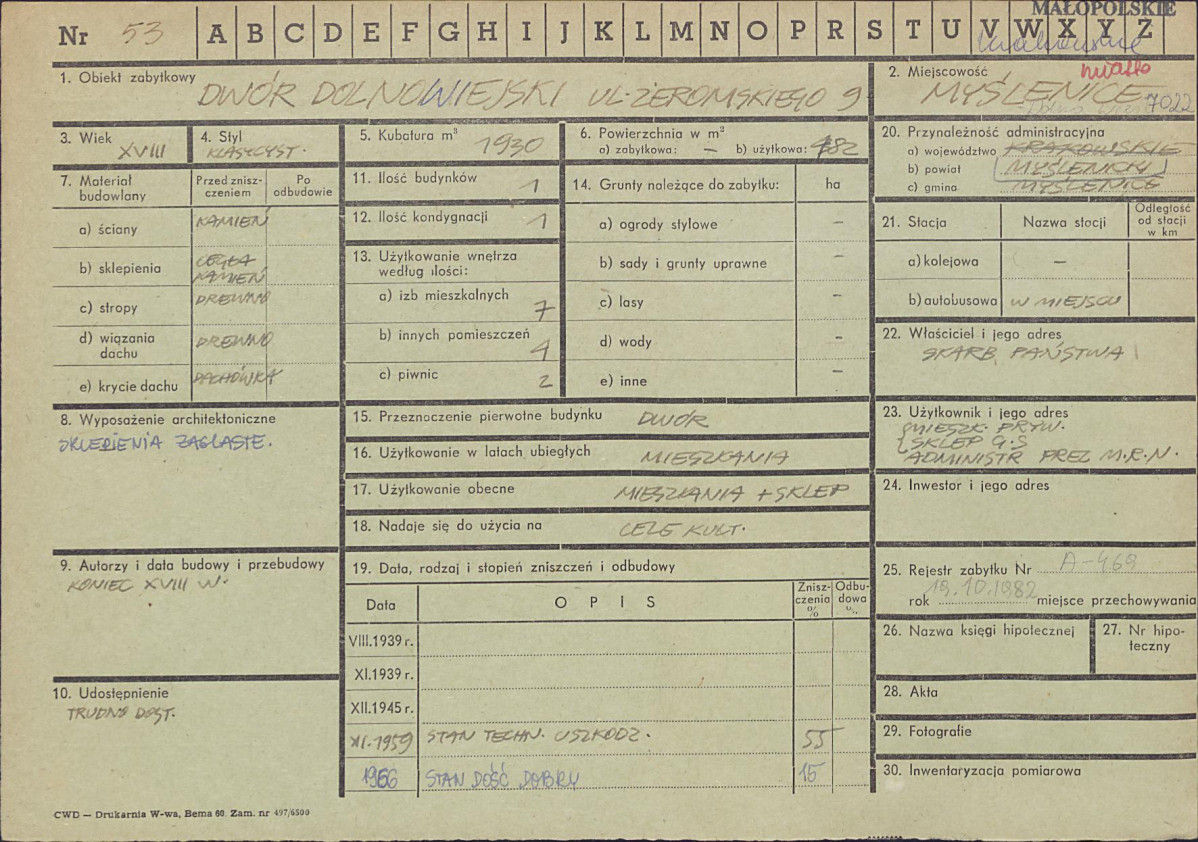 MAŁOPOLSKIE
Nr 53 A B C D E F G H I J K L M N O P R S T U V W X Y Z
miasto
1. Obiekt zabytkowy
DWÓR DOLNOWIEJSKI UL. ŻEROMSKIEGO 9
2. Miejscowość
MYŚLENICE
7022
3. Wiek
XVIII
4. Styl
KLASYCYST.
5. Kubatura m³
1930
6. Powierzchnia w m²
a) zabytkowa: — b) użytkowa: 482
7. Materiał budowlany
Przed zniszczeniem
Po odbudowie
a) ściany KAMIEŃ
b) sklepienia CEGŁA KAMIEŃ
c) stropy DREWNO
d) wiązania dachu DREWNO
e) krycie dachu DACHÓWKA
8. Wyposażenie architektoniczne
SKLEPIENIA ZAGLASTE.
9. Autorzy i data budowy i przebudowy
KONIEC XVIII W.
10. Udostępnienie
TRUDNO DOST.
11. Ilość budynków 1
12. Ilość kondygnacji 1
13. Użytkowanie wnętrza według ilości:
a) izb mieszkalnych 7
b) innych pomieszczeń 4
c) piwnic 2
14. Grunty należące do zabytku: ha
a) ogrody stylowe –
b) sady i grunty uprawne –
c) lasy –
d) wody –
e) inne –
15. Przeznaczenie pierwotne budynku DWÓR
16. Użytkowanie w latach ubiegłych MIESZKANIA
17. Użytkowanie obecne MIESZKANIA + SKLEP
18. Nadaje się do użycia na CELE KULT.
19. Data, rodzaj i stopień zniszczeń i odbudowy
Data OPIS Zniszczenia % Odbudowa %
VIII.1939 r.
XI.1939 r.
XII.1945 r.
XI.1959 STAN TECHN. USZKODZ. 55
1966 STAN DOŚĆ DOBRY 15
20. Przynależność administracyjna
a) województwo KRAKOWSKIE
b) powiat MYŚLENICKI
c) gmina MYŚLENICE
21. Stacja Nazwa stacji Odległość od stacji w km
a) kolejowa –
b) autobusowa W MIEJSCU
22. Właściciel i jego adres
SKARB PAŃSTWA
23. Użytkownik i jego adres
MIESZK. PRYW.
SKLEP G.S
ADMINISTR PREZ M.R.N.
24. Inwestor i jego adres
25. Rejestr zabytku Nr A-469
rok 19.10.1982 miejsce przechowywania
26. Nazwa księgi hipotecznej
27. Nr hipoteczny
28. Akta
29. Fotografie
30. Inwentaryzacja pomiarowa
CWD — Drukarnia W-wa, Bema 60. Zam. nr 497/6500